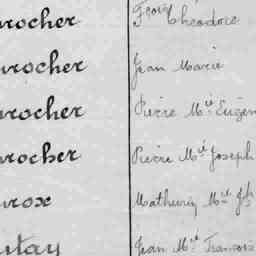 rocher Fçois Théodore
rocher Jean Marie
rocher Pierre Mie Eugèn
rocher Pierre Mie Joseph
rox Mathurin Mie Jph
utay Jean Mie François